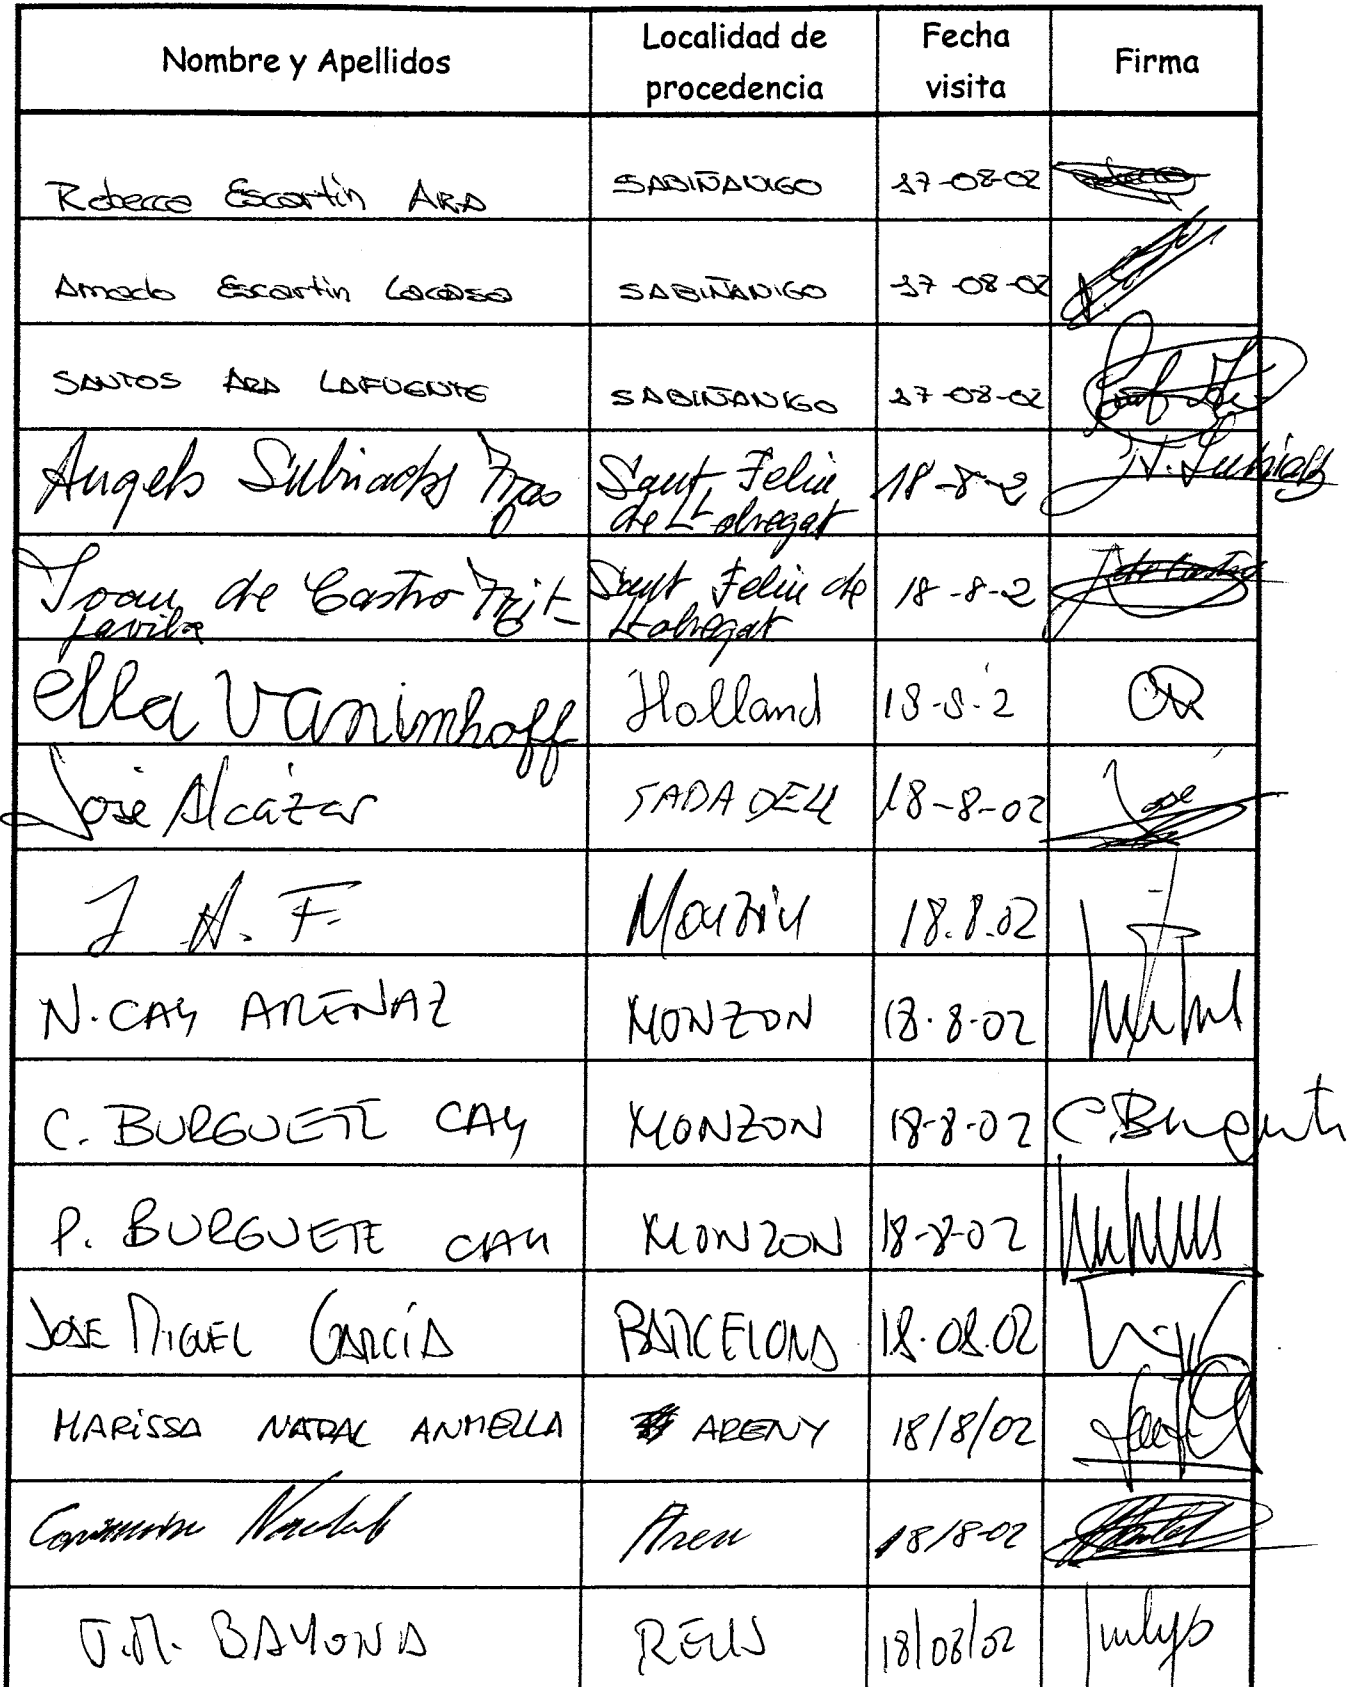 Nombre y Apellidos
Localidad de
procedencia
Fecha
visita
Firma
Rebecca Escartín ARA
SABIÑANIGO
17-08-02
Amado Escartin Lacasa
SABIÑANIGO
17-08-02
SANTOS ARA LAFUENTE
SABIÑANIGO
17-08-02
Angels Subiachs
Sant Feliu
de Llobregat
18-8-2
Joan de Castro
Sant Feliu de
Llobregat
18-8-2
ella Vanimhoff
Holland
18-8-2
José Alcázar
SABADELL
18-8-02
José
J A. F.
Monzón
18.8.02
N. CAY ARENAZ
MONZON
18-8-02
C. BURGUETE CAY
MONZON
18-8-02
C. Burguete
P. BURGUETE CAY
MONZON
18-8-02
JOSE MIGUEL GARCÍA
BARCELONA
18.08.02
MARISSA NADAL ANMELLA
ARENY
18/8/02
Nadal
Aren
18/8-02
J.M. BAYONA
REUS
18/08/02